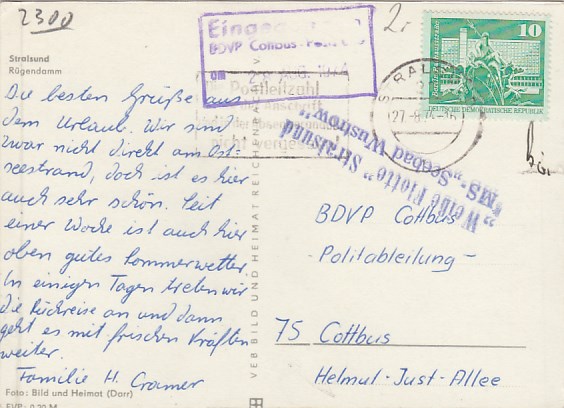 2300
Stralsund
Rügendamm
Die besten Grüße aus
dem Urlaub. Wir sind
zwar nicht direkt am Ost-
seestrand, doch ist es hier
auch sehr schön. Seit
einer Woche ist auch hier
oben gutes Sommerwetter.
In einigen Tagen treten wir
die Rückreise an und dann
geht es mit frischen Kräften
weiter.
Familie H. Cramer
Foto: Bild und Heimat (Darr)
EVP: 0,20 M
VEB BILD UND HEIMAT REICHENBACH
BDVP Cottbus
am
Postleitzahl
10
DEUTSCHE DEMOKRATISCHE REPUBLIK
„Weiße Flotte" Stralsund
MS-„Seebad Wustrow"
BDVP Cottbus
- Politabteilung -
75 Cottbus
Helmut-Just-Allee